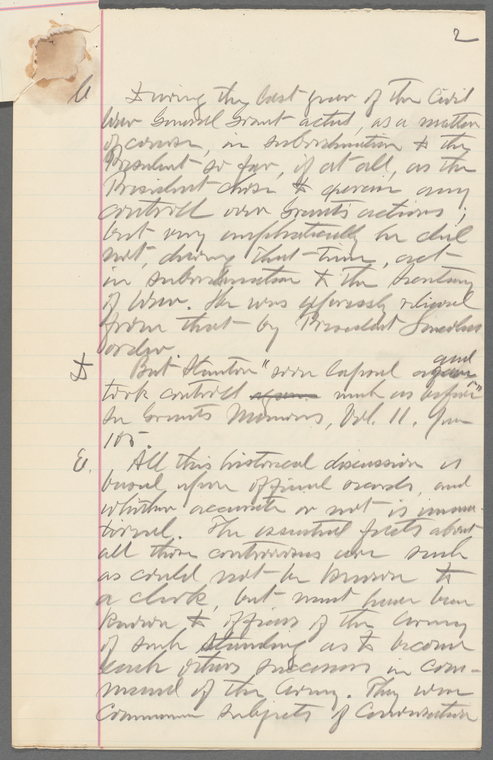 2
C During the last year of the Civil
War General Grant acted, as a matter
of course, in subordination to the
President so far, if at all, as the
President chose to exercise any
controll over Grant's actions;
but very emphatically he did
not, during that time, act
in subordination to the Secretary
of War. He was expressly relieved
from that by President Lincolns
order.
D But Stanton "soon lapsed and again
took controll much as before"
See Grants Memoirs, Vol. II. Page
105.
E. All this historical discussion is
based upon official records, and
whether accurate or not is
The essential facts about
all these controversies were such
as could not be known to
a clerk, but must have been
known to officers of the Army
of such standing as to become
each others successors in com-
mand of the Army. They were
common subjects of conversation